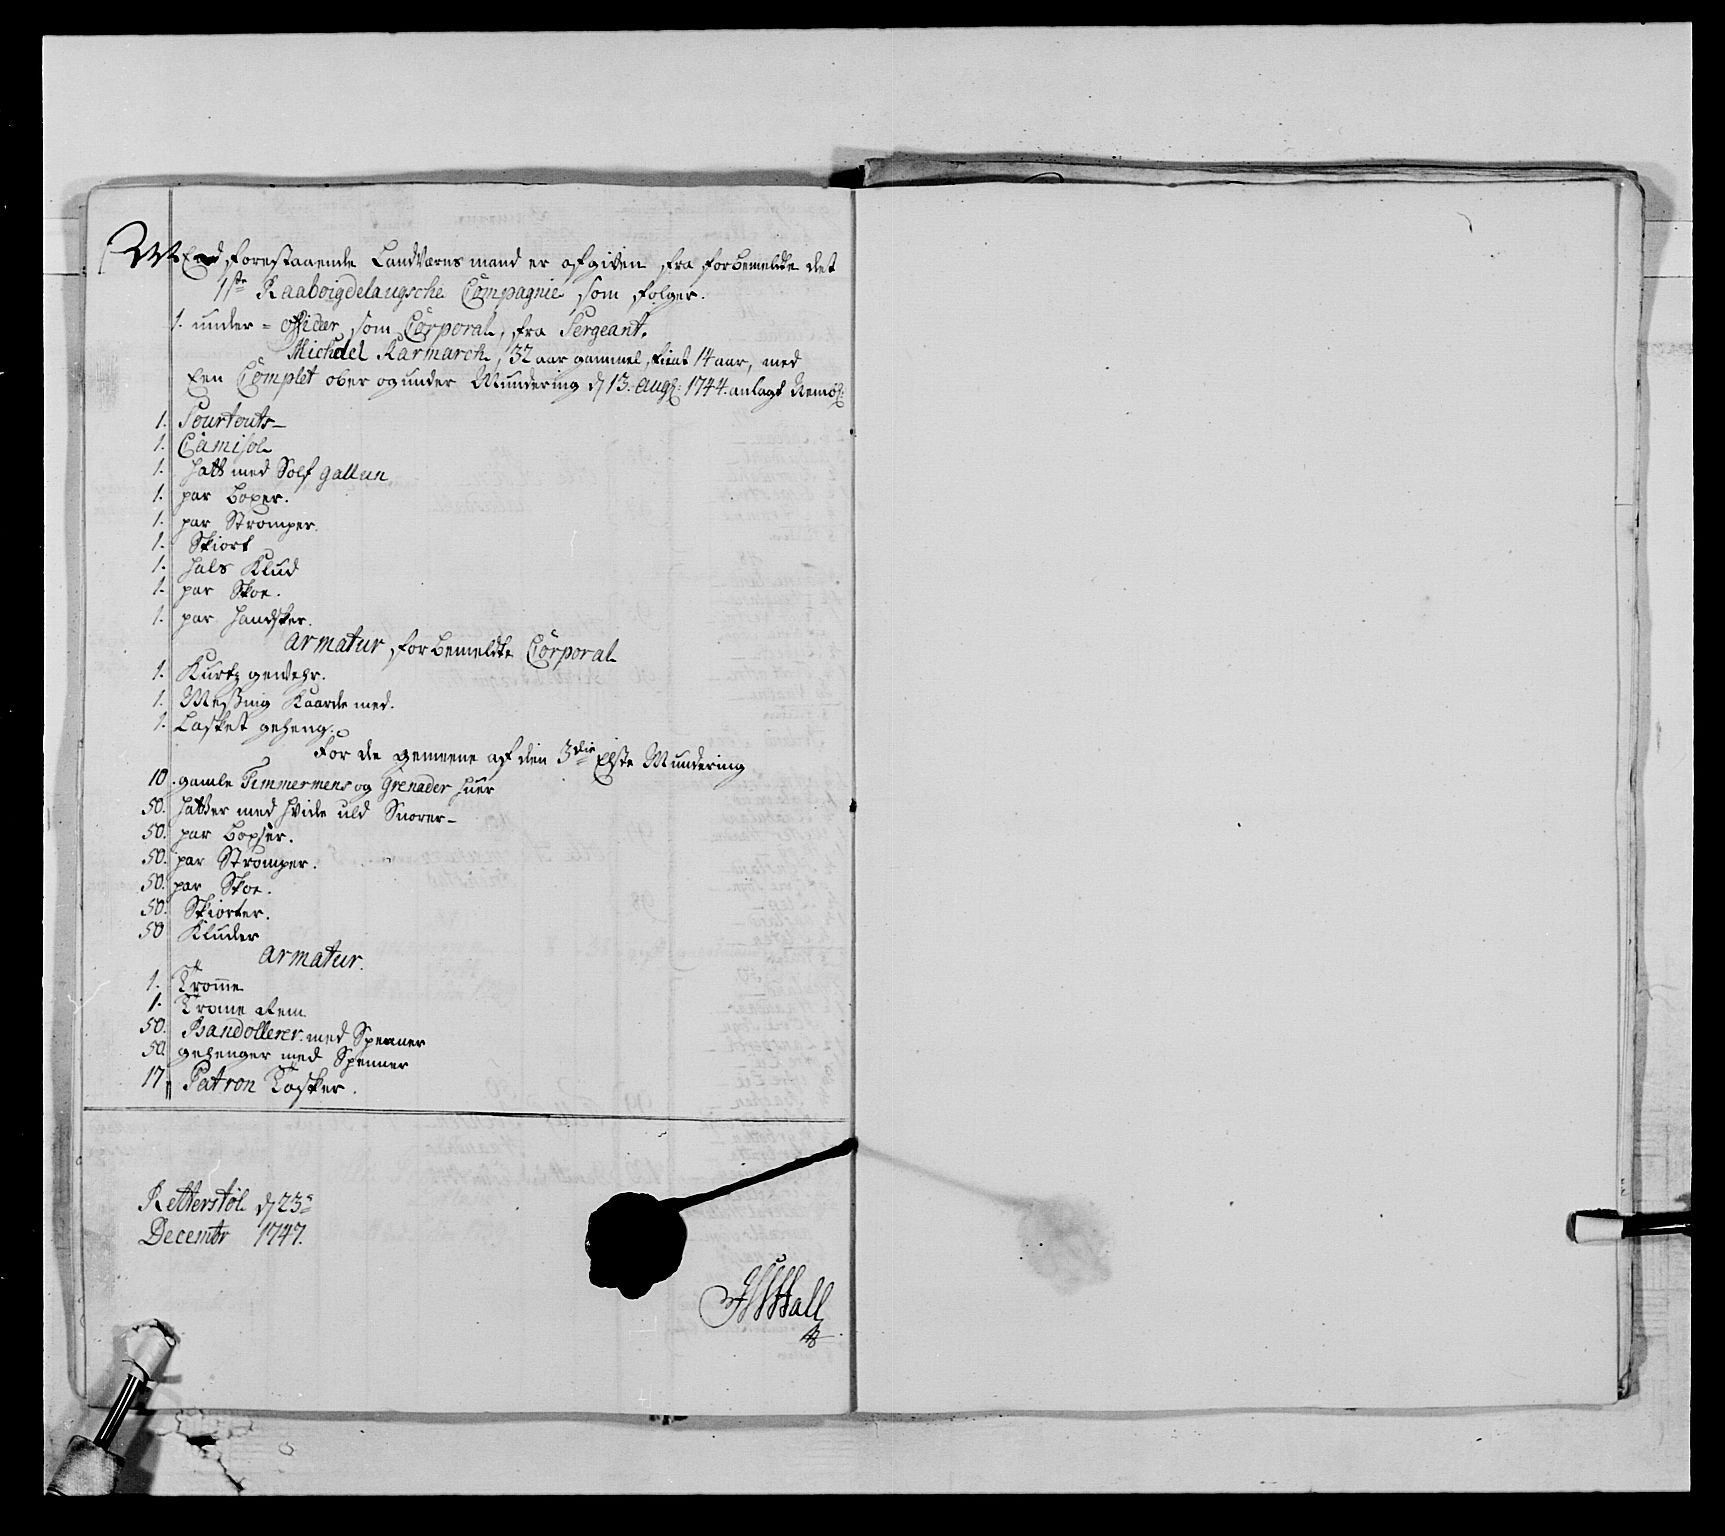 Wed forestaaende LandVærns mand er afgiven fra forbemeldte det
1ste Raaboigdelaugsche Compagnie som følger.
1. under-officer som Corporal, fra Sergeant.
Michael Karmarck, 32 aar gammel, tient 14 aar, med
Een Complet ober og under Mundering d 13. Aug: 1744. anlagt Nemb:
1. Sourtouts
1. Camisol
1. Hatt med Sølf gallun
1. par boxer.
1. par Strømper.
1. Skiort
1. Hals Klud
1. par Skoe.
1. par Handsker.
Armatur forbemeldte Corporal
1. Kurtz gewehr.
1. Messing Kaarde med.
1. Lasket geheng.
For de gemeene af den 3die Elste Mundering
10. gamle Timmermens og Grenader Huer
50. Hatter med Hvide uld Snorer
50. par boxser.
50. par Strømper.
50. par Skoe.
50. Skiorter.
50 Kluder
Armatur.
1. Tromme
1. Trome Rem
50. Bandollerer med Spenner
50 gehenger med Spenner
17 Patron Tasker.
Retterstøl d 23
Decembr 1747.
Hall